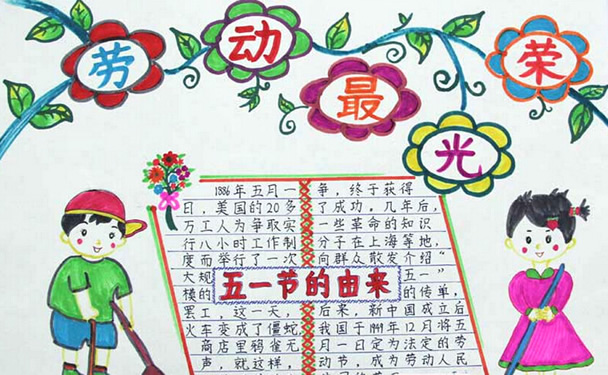 劳动最光荣
1886年五月一
日，美国的20多
万工人为争取实
行八小时工作制
度而举行了一次
大规
模的
罢工，这一天，
火车变成了僵蛇
商店里鸦雀无
声，就这样，
五一节的由来
争，终于获得
了成功。几年后，
一些革命的知识
分子在上海等地，
向群众散发介绍“
五一”
的传单，
后来，新中国成立后
我国于1949年12月将五
月一日定为法定的劳
动节，成为劳动人民